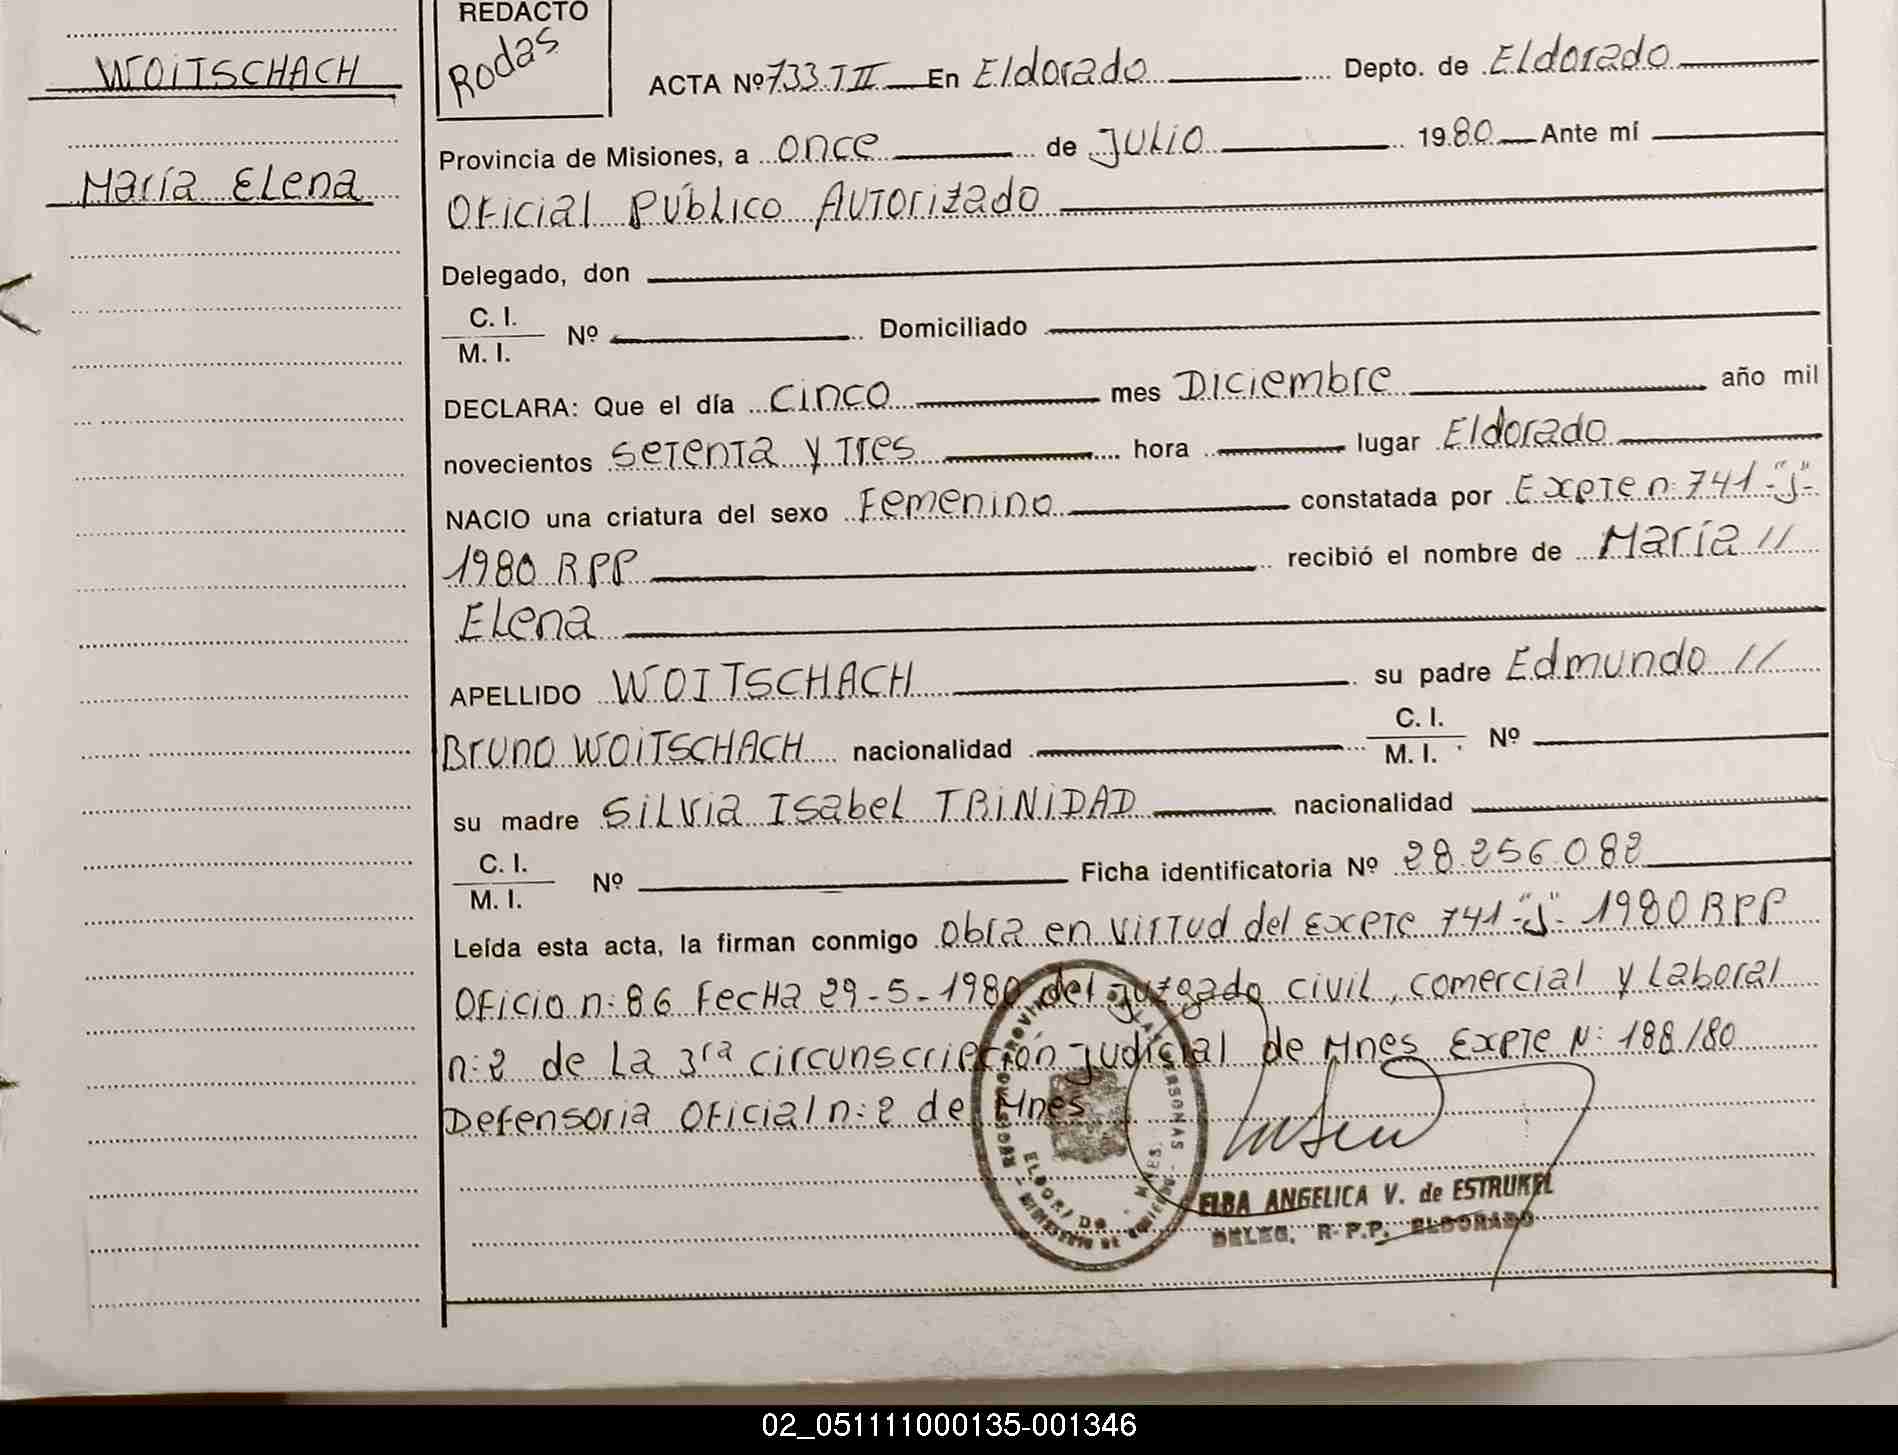 WOITSCHACH
María Elena
REDACTO
Rodas
ACTA Nº 733 TII En Eldorado Depto. de Eldorado
Provincia de Misiones, a once de Julio 1980 Ante mí
Oficial Público Autorizado
Delegado, don
C. I.
M. I. Nº Domiciliado
DECLARA: Que el día cinco mes Diciembre año mil
novecientos setenta y tres hora lugar Eldorado
NACIO una criatura del sexo Femenino constatada por Expte n: 741-"J"-
1980 RPP recibió el nombre de María //
Elena
APELLIDO WOITSCHACH su padre Edmundo //
Bruno WOITSCHACH nacionalidad C. I.
M. I. Nº
su madre Silvia Isabel TRINIDAD nacionalidad
C. I.
M. I. Nº Ficha identificatoria Nº 28.256.082
Leída esta acta, la firman conmigo obra en virtud del Expte 741-"J"- 1980 RPP
Oficio n: 86 Fecha 29-5-1980 del juzgado civil, comercial y laboral
n: 2 de la 3ra circunscripción judicial de Mnes Expte N: 188/80
Defensoria Oficial n: 2 de Mnes
ELBA ANGELICA V. de ESTRUKEL
DELEG. R.P.P. ELDORADO
02_051111000135-001346